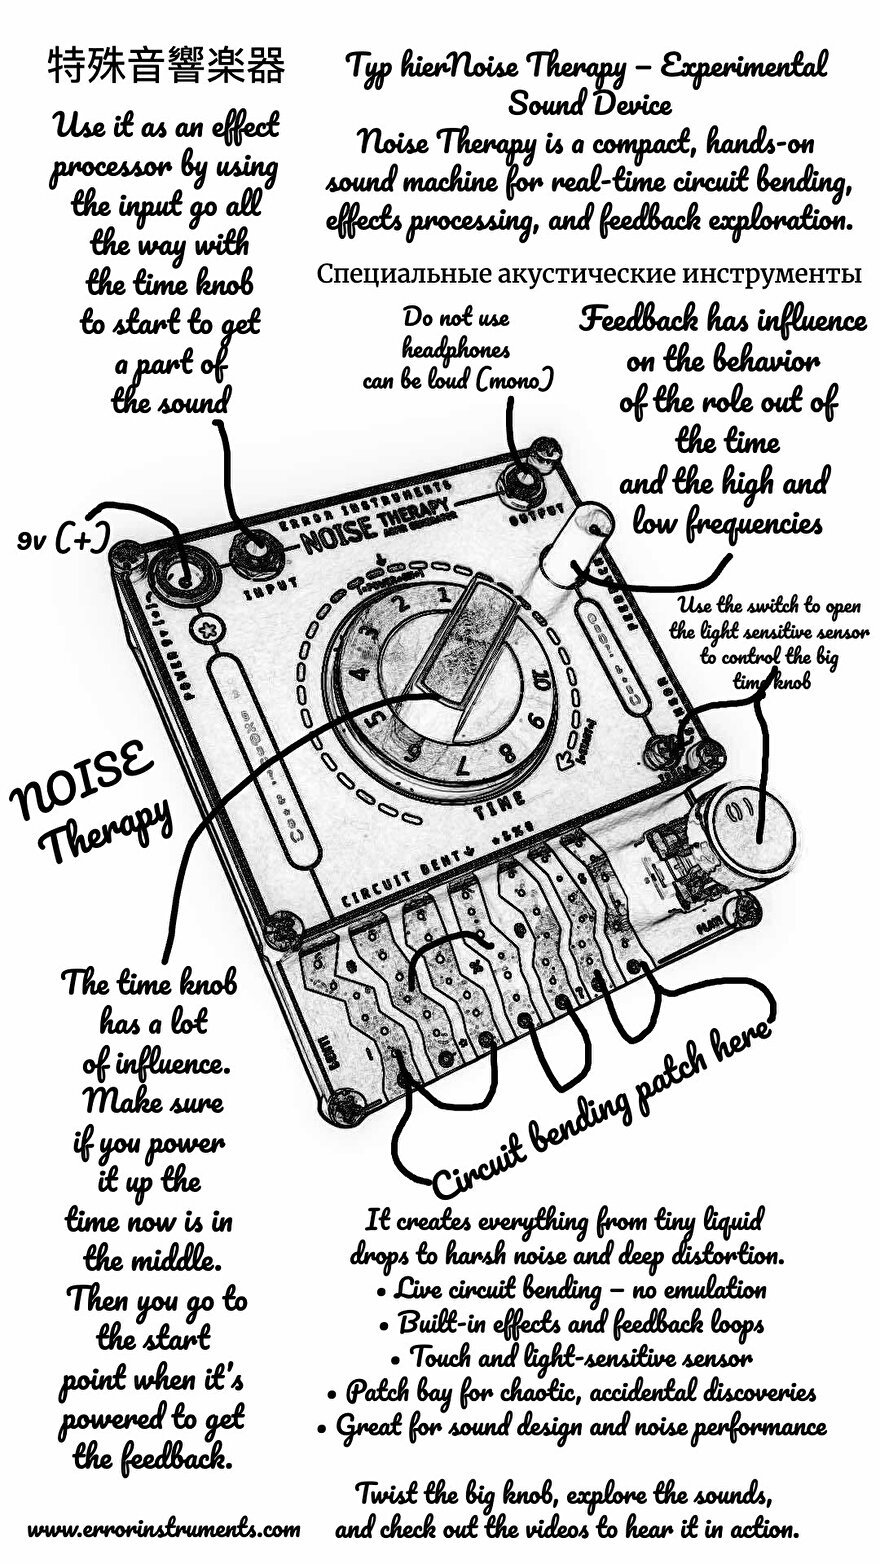 特殊音響楽器
Use it as an effect
processor by using
the input go all
the way with
the time knob
to start to get
a part of
the sound
Typ hierNoise Therapy – Experimental
Sound Device
Noise Therapy is a compact, hands-on
sound machine for real-time circuit bending,
effects processing, and feedback exploration.
Специальные акустические инструменты
Do not use
headphones
can be loud (mono)
Feedback has influence
on the behavior
of the role out of
the time
and the high and
low frequencies
9v (+)
ERROR INSTRUMENTS
NOISE THERAPY
OUTPUT
INPUT
POWER 9V
1
2
3
4
5
6
7
8
9
10
TIME
CIRCUIT BENT
Use the switch to open
the light sensitive sensor
to control the big
time knob
NOISE
Therapy
The time knob
has a lot
of influence.
Make sure
if you power
it up the
time now is in
the middle.
Then you go to
the start
point when it's
powered to get
the feedback.
Circuit bending patch here
It creates everything from tiny liquid
drops to harsh noise and deep distortion.
• Live circuit bending – no emulation
• Built-in effects and feedback loops
• Touch and light-sensitive sensor
• Patch bay for chaotic, accidental discoveries
• Great for sound design and noise performance
Twist the big knob, explore the sounds,
and check out the videos to hear it in action.
www.errorinstruments.com